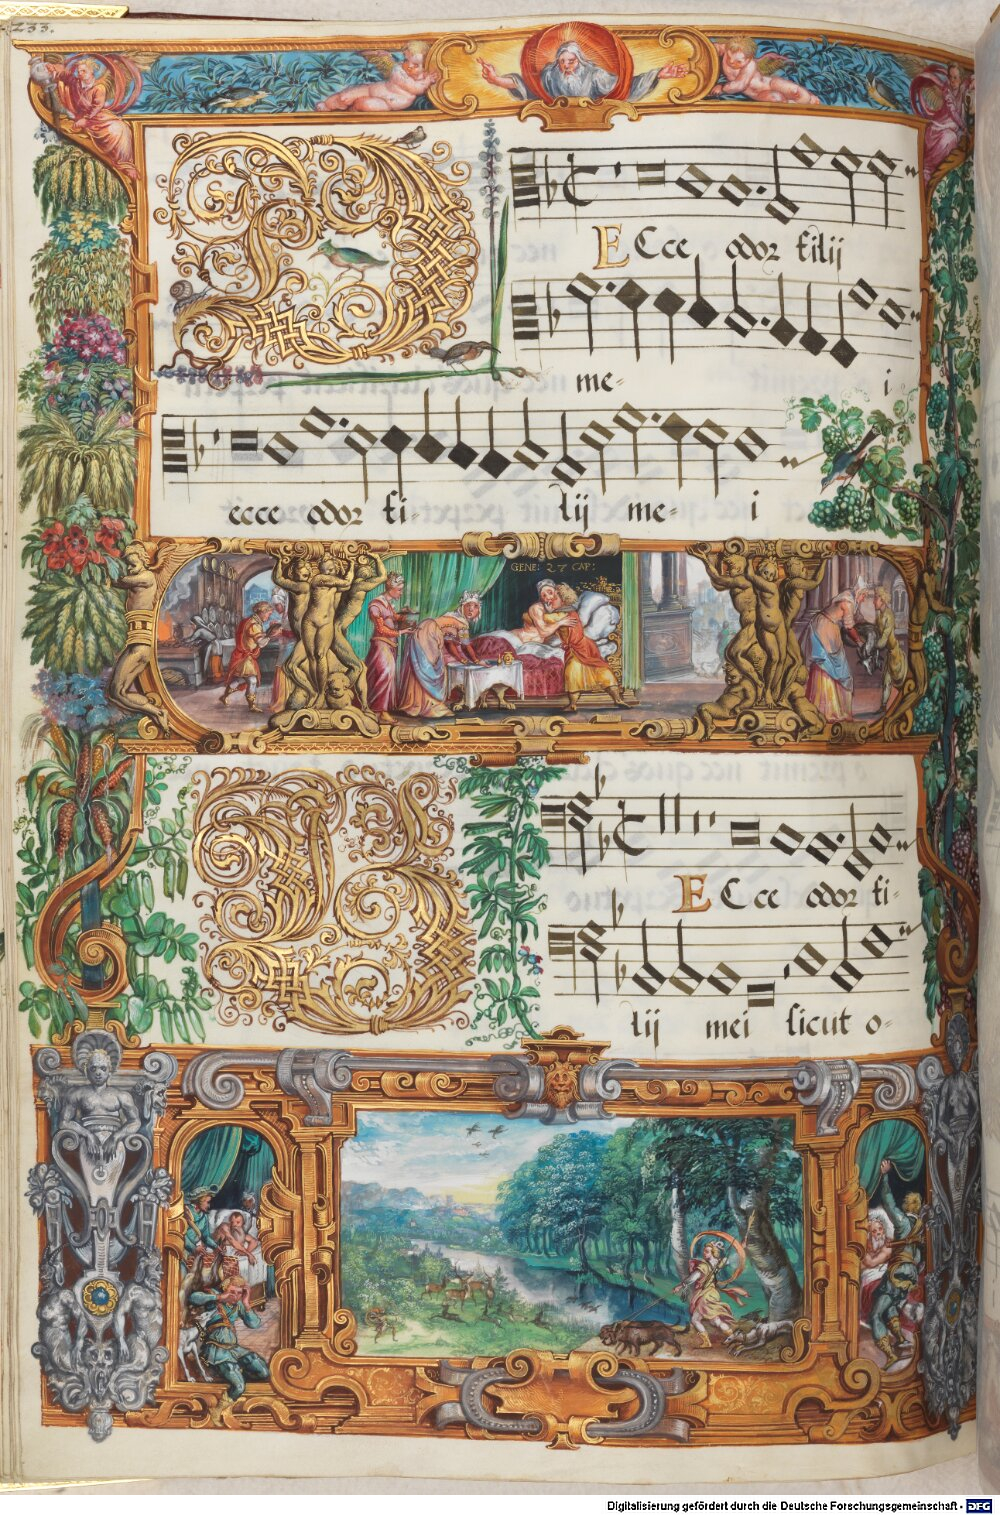 233.
ECce odor filij
me- i
ecce odor fi- lij me- i
GENE: 27 CAP:
ECce odor fi-
lij mei sicut o-
Digitalisierung gefördert durch die Deutsche Forschungsgemeinschaft - DFG